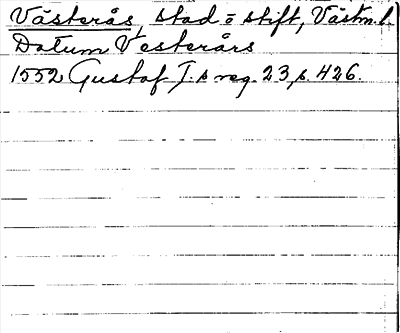 Västerås, stad o stift, Västm. l.
Datum Vesterårs
1552 Gustaf I:s reg. 23, s. 426.